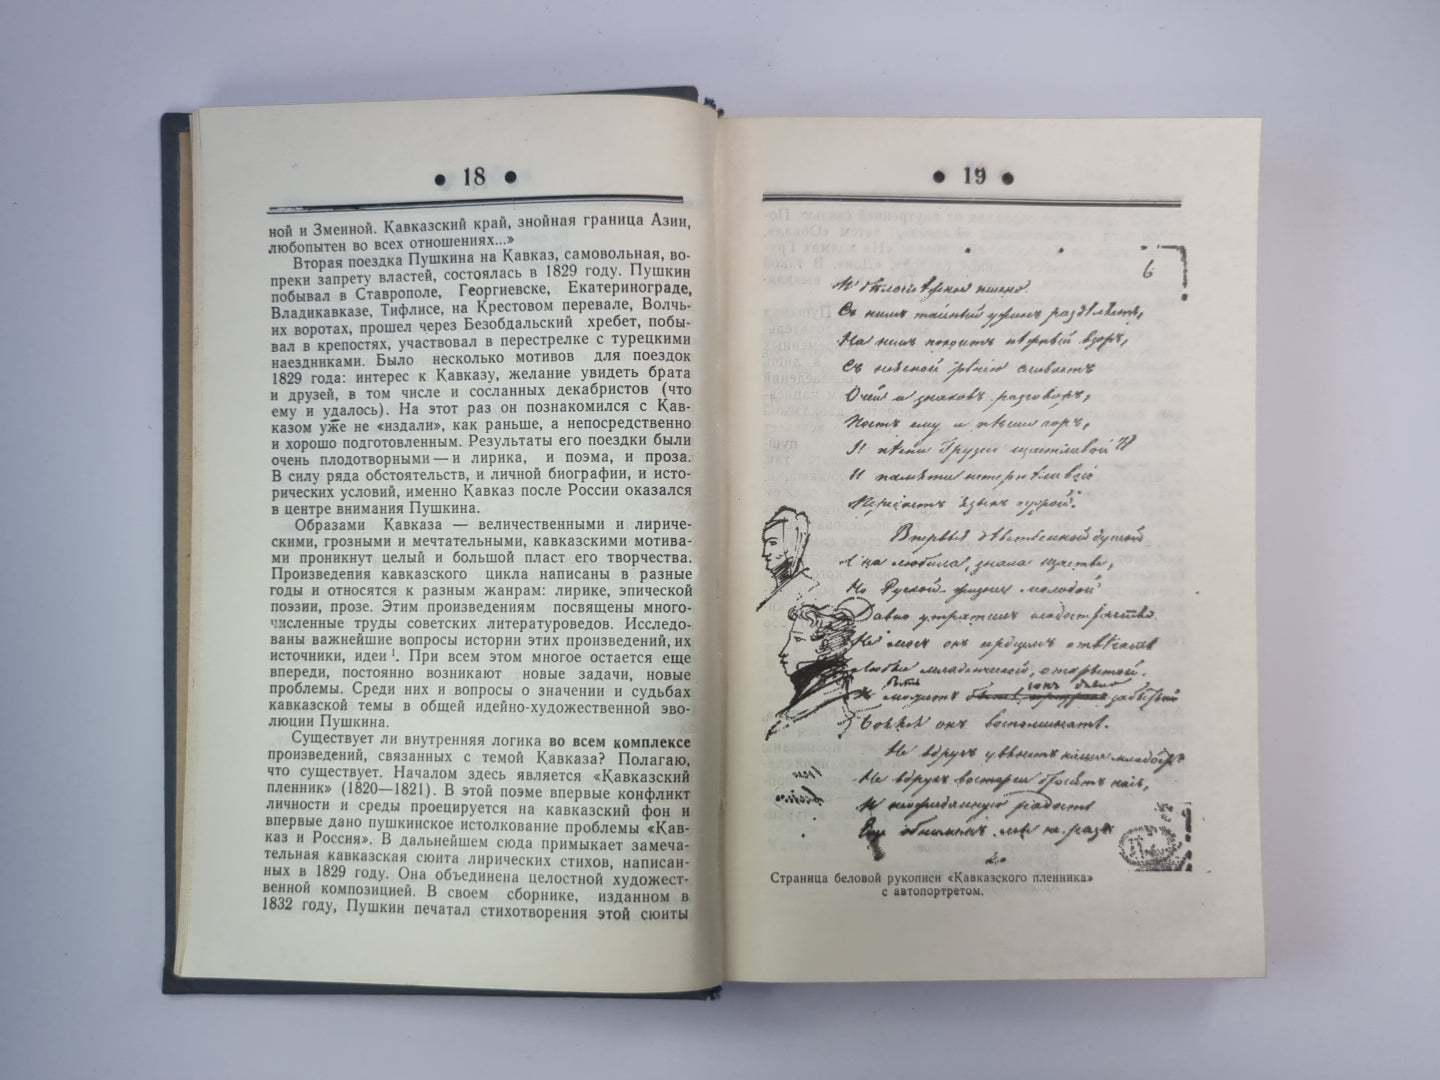 • 18 •
ной и Змеиной. Кавказский край, знойная граница Азии,
любопытен во всех отношениях...»
Вторая поездка Пушкина на Кавказ, самовольная, во-
преки запрету властей, состоялась в 1829 году. Пушкин
побывал в Ставрополе, Георгиевске, Екатеринограде,
Владикавказе, Тифлисе, на Крестовом перевале, Волчь-
их воротах, прошел через Безобдальский хребет, побы-
вал в крепостях, участвовал в перестрелке с турецкими
наездниками. Было несколько мотивов для поездок
1829 года: интерес к Кавказу, желание увидеть брата
и друзей, в том числе и сосланных декабристов (что
ему и удалось). На этот раз он познакомился с Кав-
казом уже не «издали», как раньше, а непосредственно
и хорошо подготовленным. Результаты его поездки были
очень плодотворными — и лирика, и поэма, и проза.
В силу ряда обстоятельств, и личной биографии, и исто-
рических условий, именно Кавказ после России оказался
в центре внимания Пушкина.
Образами Кавказа — величественными и лириче-
скими, грозными и мечтательными, кавказскими мотива-
ми проникнут целый и большой пласт его творчества.
Произведения кавказского цикла написаны в разные
годы и относятся к разным жанрам: лирике, эпической
поэзии, прозе. Этим произведениям посвящены много-
численные труды советских литературоведов. Исследо-
ваны важнейшие вопросы истории этих произведений, их
источники, идеи ¹. При всем этом многое остается еще
впереди, постоянно возникают новые задачи, новые
проблемы. Среди них и вопросы о значении и судьбах
кавказской темы в общей идейно-художественной эво-
люции Пушкина.
Существует ли внутренняя логика во всем комплексе
произведений, связанных с темой Кавказа? Полагаю,
что существует. Началом здесь является «Кавказский
пленник» (1820—1821). В этой поэме впервые конфликт
личности и среды проецируется на кавказский фон и
впервые дано пушкинское истолкование проблемы «Кав-
каз и Россия». В дальнейшем сюда примыкает замеча-
тельная кавказская сюита лирических стихов, написан-
ных в 1829 году. Она объединена целостной художест-
венной композицией. В своем сборнике, изданном в
1832 году, Пушкин печатал стихотворения этой сюиты
• 19 •
6
Съ нимъ тайный ужинъ раздѣляетъ,
На немъ покоитъ нѣжный взоръ,
Очей и знаковъ разговоръ,
Поетъ ему и пѣсни горъ,
И пѣсни Грузіи щастливой
И памяти нетерпѣливой
Впервые дѣвственной душой
Она любила, знала щастье,
Но Руской жизни молодой
Давно утратилъ сладострастье.
Не могъ онъ сердцемъ отвѣчать
Любви младенческой, открытой.
Не вдругъ увянетъ наша младость
Не вдругъ восторги бросятъ насъ,
И неожиданную радость
Еще обнимемъ мы не разъ
Страница беловой рукописи «Кавказского пленника»
с автопортретом.